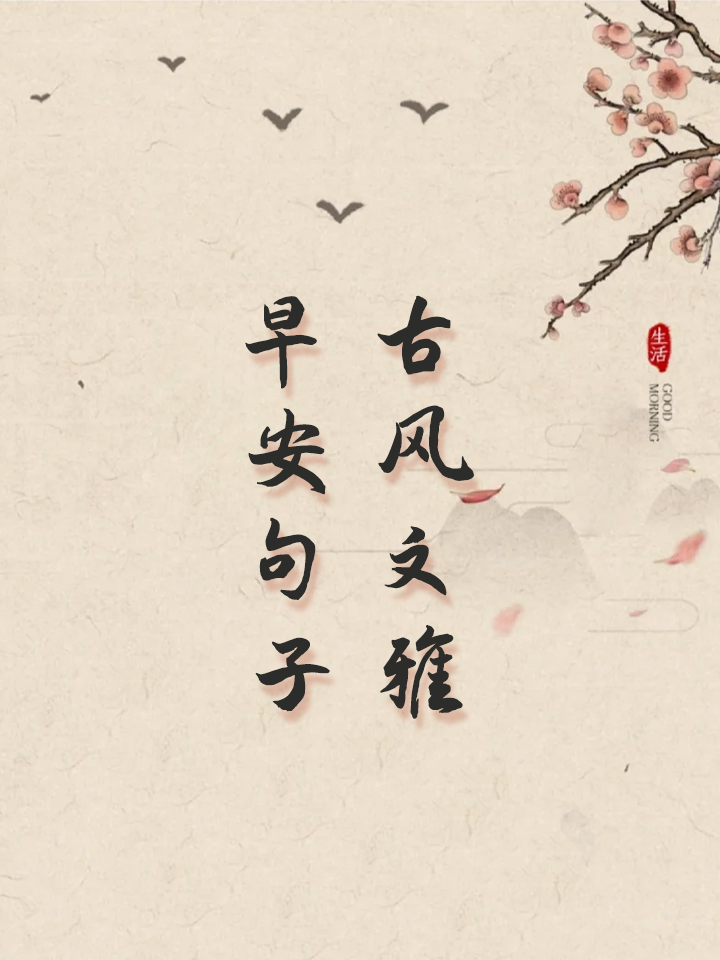 古风文雅
早安句子
生活
GOOD
MORNING